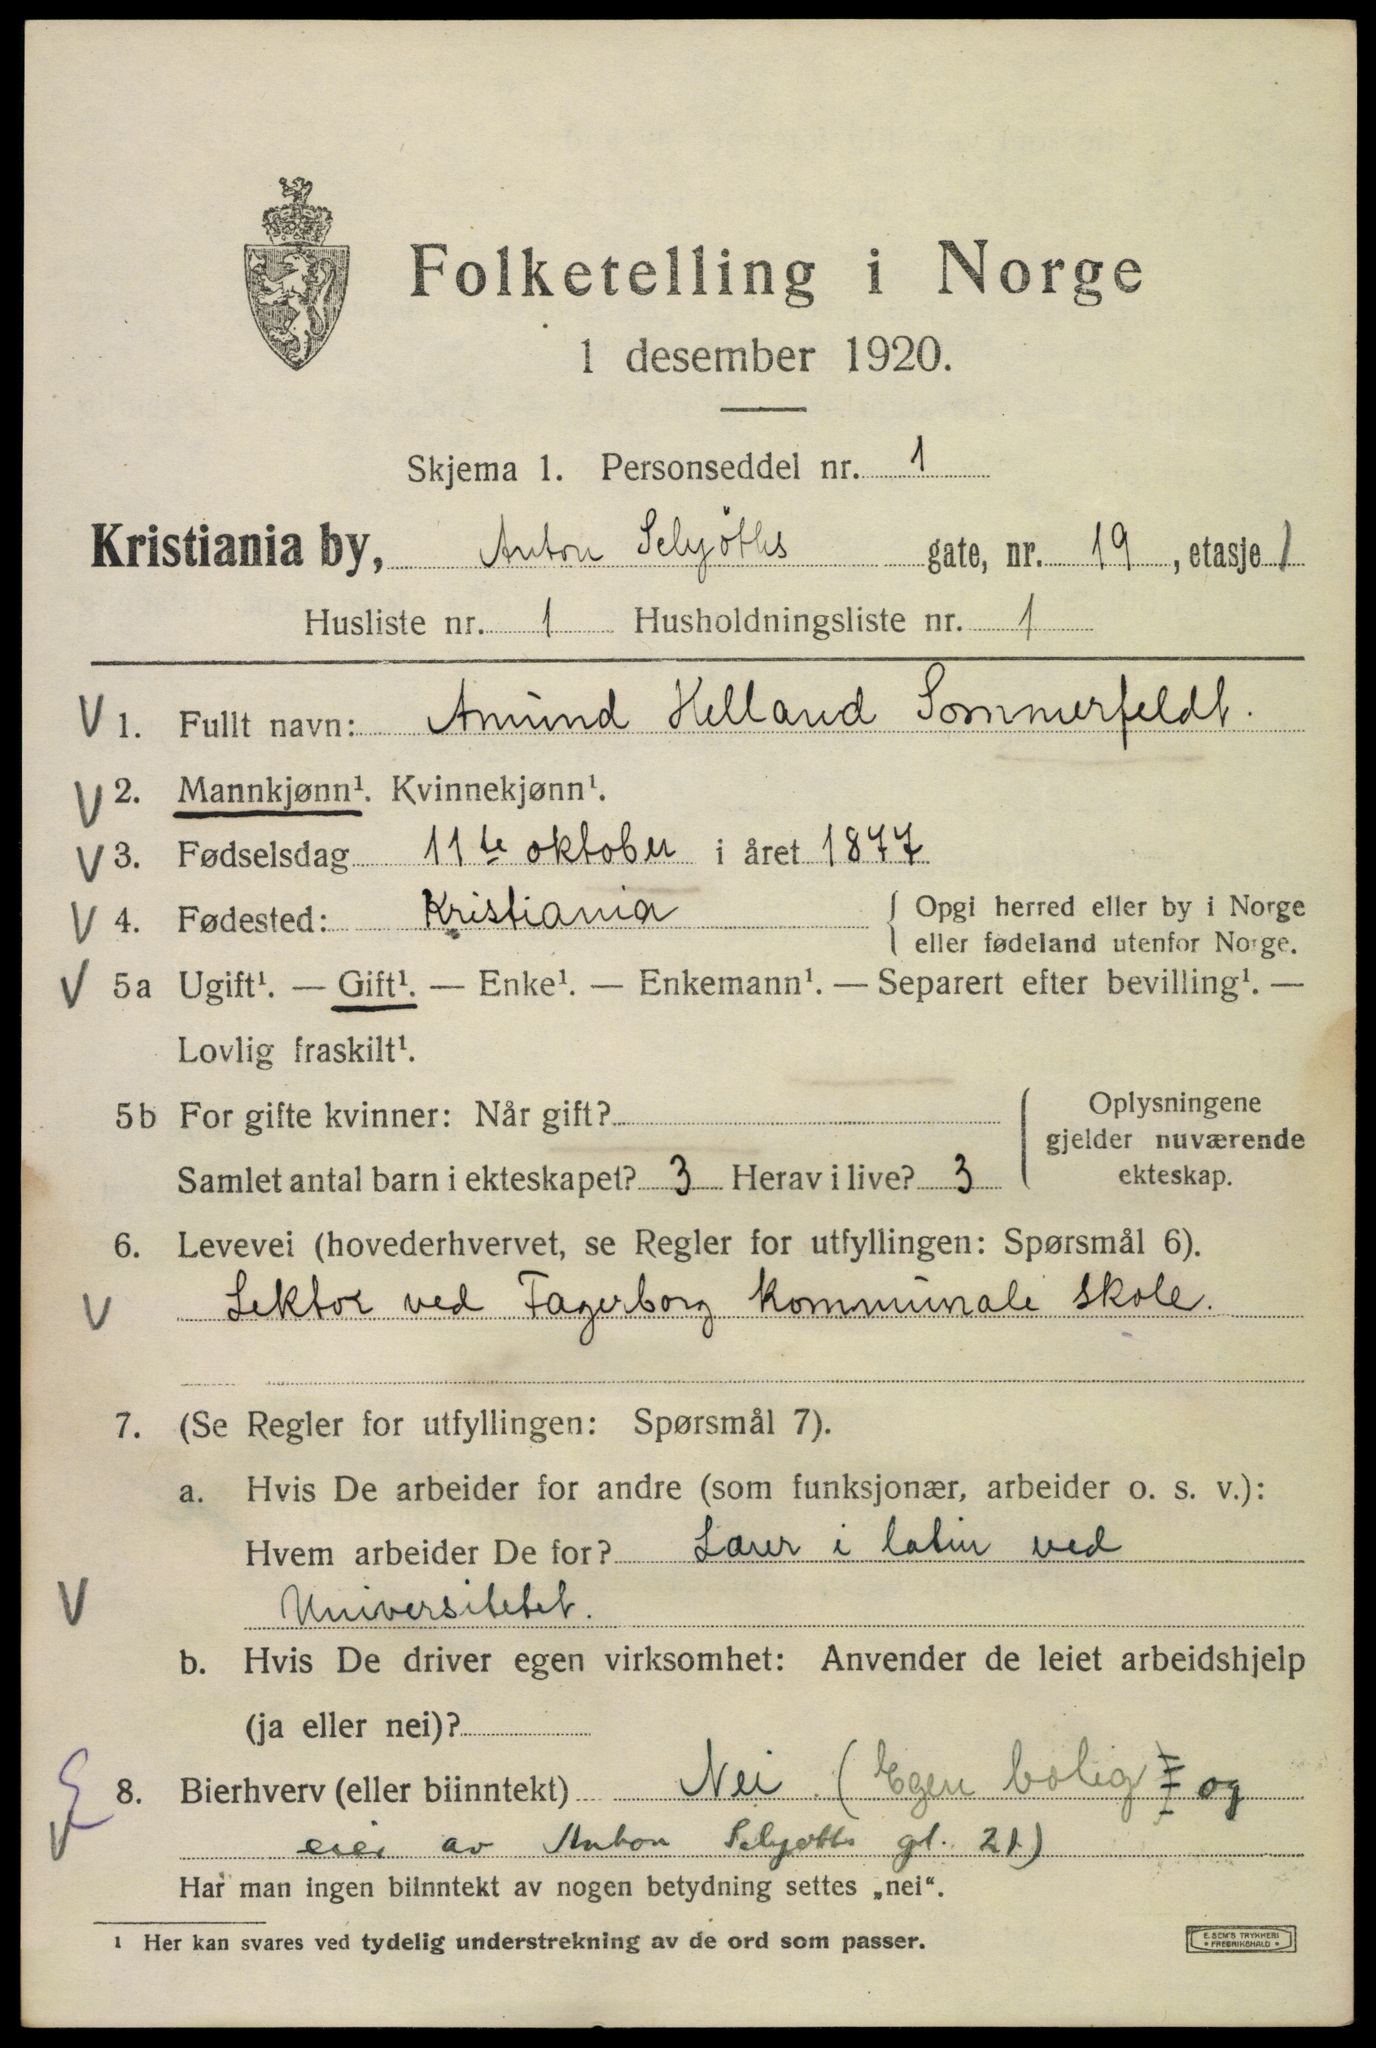 Folketelling i Norge
1 desember 1920.
Skjema 1. Personseddel nr. 1
Kristiania by, Anton Schjöths gate, nr. 19, etasje 1
Husliste nr. 1 Husholdningsliste nr. 1
V 1. Fullt navn: Amund Helland Sommerfeldt.
V 2. Mannkjønn¹. Kvinnekjønn¹.
V 3. Fødselsdag 11te oktober i året 1877
V 4. Fødested: Kristiania { Opgi herred eller by i Norge
eller fødeland utenfor Norge.
V 5a Ugift¹. — Gift¹. — Enke¹. — Enkemann¹. — Separert efter bevilling¹. —
Lovlig fraskilt¹.
5b For gifte kvinner: Når gift?
Samlet antal barn i ekteskapet? 3 Herav i live? 3
Oplysningene
gjelder nuværende
ekteskap.
6. Levevei (hovederhvervet, se Regler for utfyllingen: Spørsmål 6).
V Lektor ved Fagerborg kommunale skole.
7. (Se Regler for utfyllingen: Spørsmål 7).
a. Hvis De arbeider for andre (som funksjonær, arbeider o. s. v.):
Hvem arbeider De for? Lærer i latin ved
V Universitetet.
b. Hvis De driver egen virksomhet: Anvender de leiet arbeidshjelp
(ja eller nei)?
8. Bierhverv (eller biinntekt) Nei. (Egen bolig) og
V eier av Anton Schjøtts gt. 21)
Har man ingen biinntekt av nogen betydning settes „nei“.
¹ Her kan svares ved tydelig understrekning av de ord som passer.
E. SEM'S TRYKKERI
• FREDRIKSHALD •